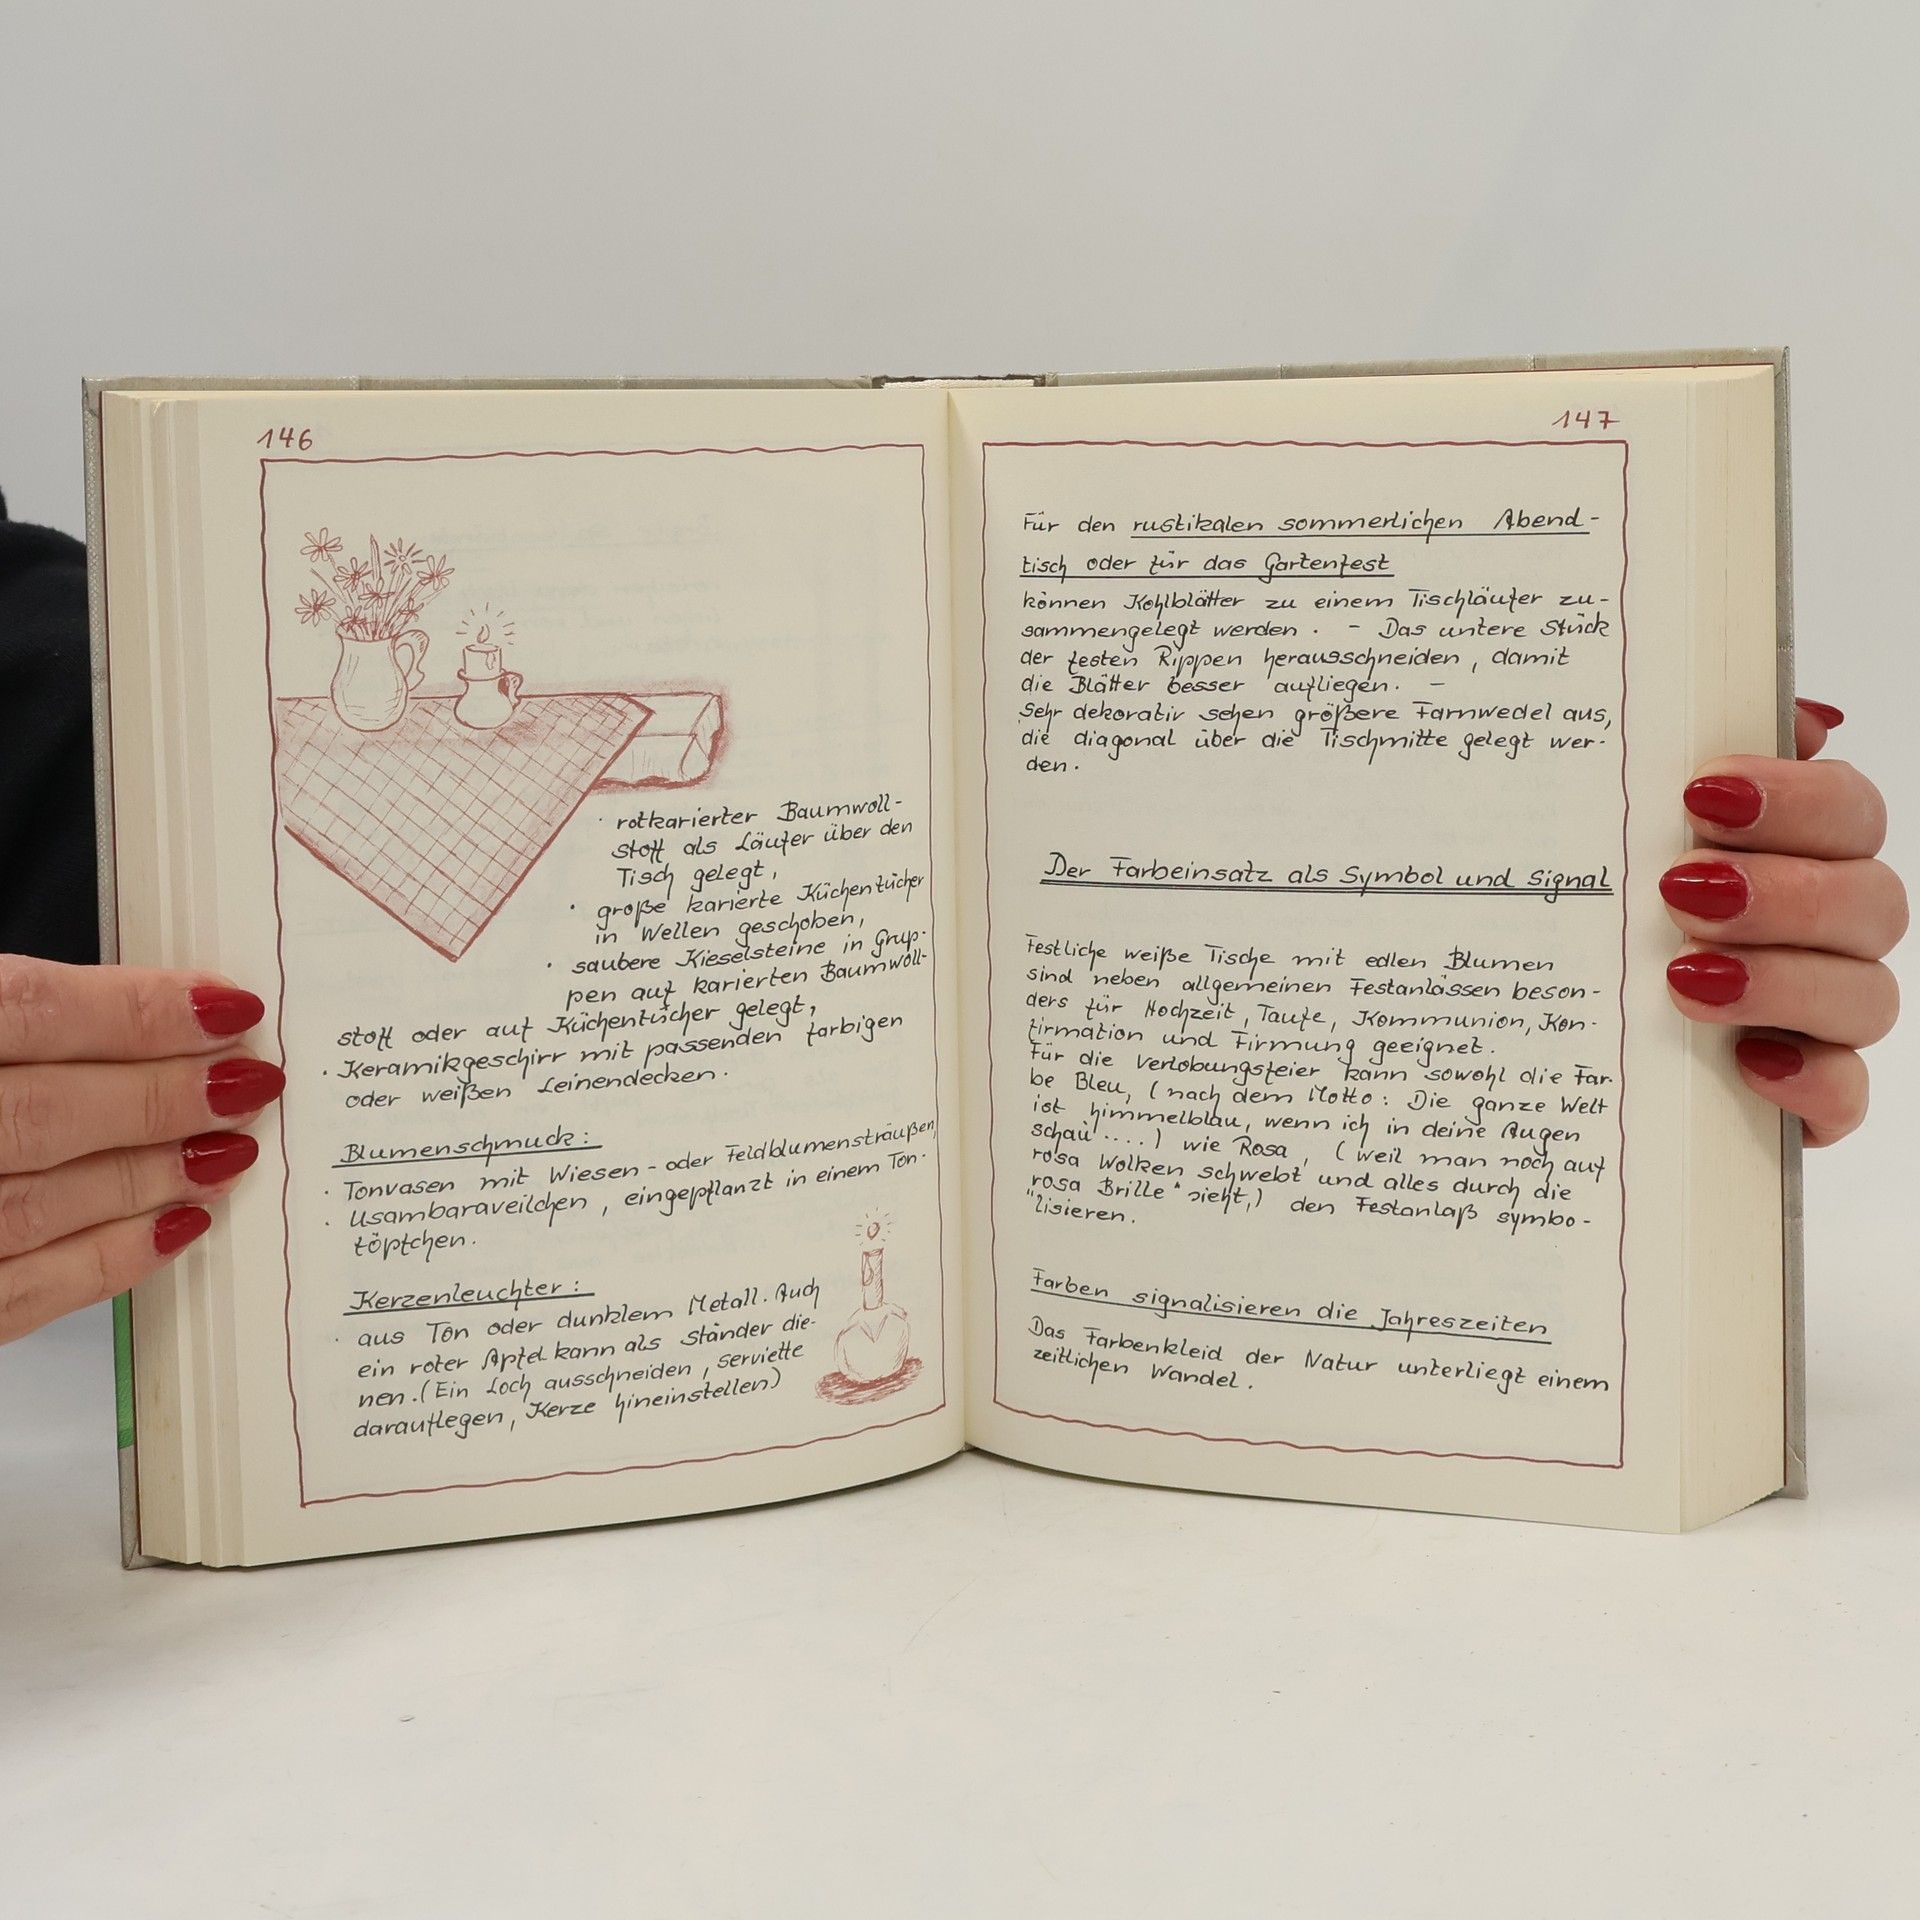 146
· rotkarierter Baumwoll-
stoff als Läufer über den
Tisch gelegt,
· große karierte Küchentücher
in Wellen geschoben,
· saubere Kieselsteine in Grup-
pen auf karierten Baumwoll-
stoff oder auf Küchentücher gelegt,
· Keramikgeschirr mit passenden farbigen
oder weißen Leinendecken.
Blumenschmuck:
· Tonvasen mit Wiesen- oder Feldblumensträußen,
· Usambaraveilchen, eingepflanzt in einem Ton-
töpfchen.
Kerzenleuchter:
· aus Ton oder dunklem Metall. Auch
ein roter Apfel kann als Ständer die-
nen. (Ein Loch ausschneiden, Serviette
darauflegen, Kerze hineinstellen)
147
Für den rustikalen sommerlichen Abend-
tisch oder für das Gartenfest
können Kohlblätter zu einem Tischläufer zu-
sammengelegt werden. - Das untere Stück
der festen Rippen herausschneiden, damit
die Blätter besser aufliegen. -
Sehr dekorativ sehen größere Farnwedel aus,
die diagonal über die Tischmitte gelegt wer-
den.
Der Farbeinsatz als Symbol und Signal
Festliche weiße Tische mit edlen Blumen
sind neben allgemeinen Festanlässen beson-
ders für Hochzeit, Taufe, Kommunion, Kon-
firmation und Firmung geeignet.
Für die Verlobungsfeier kann sowohl die Far-
be Bleu, (nach dem Motto: Die ganze Welt
ist himmelblau, wenn ich in deine Augen
schau'....) wie Rosa, (weil man noch auf
rosa Wolken schwebt und alles durch die
"rosa Brille" sieht,) den Festanlaß symbo-
lisieren.
Farben signalisieren die Jahreszeiten
Das Farbenkleid der Natur unterliegt einem
zeitlichen Wandel.